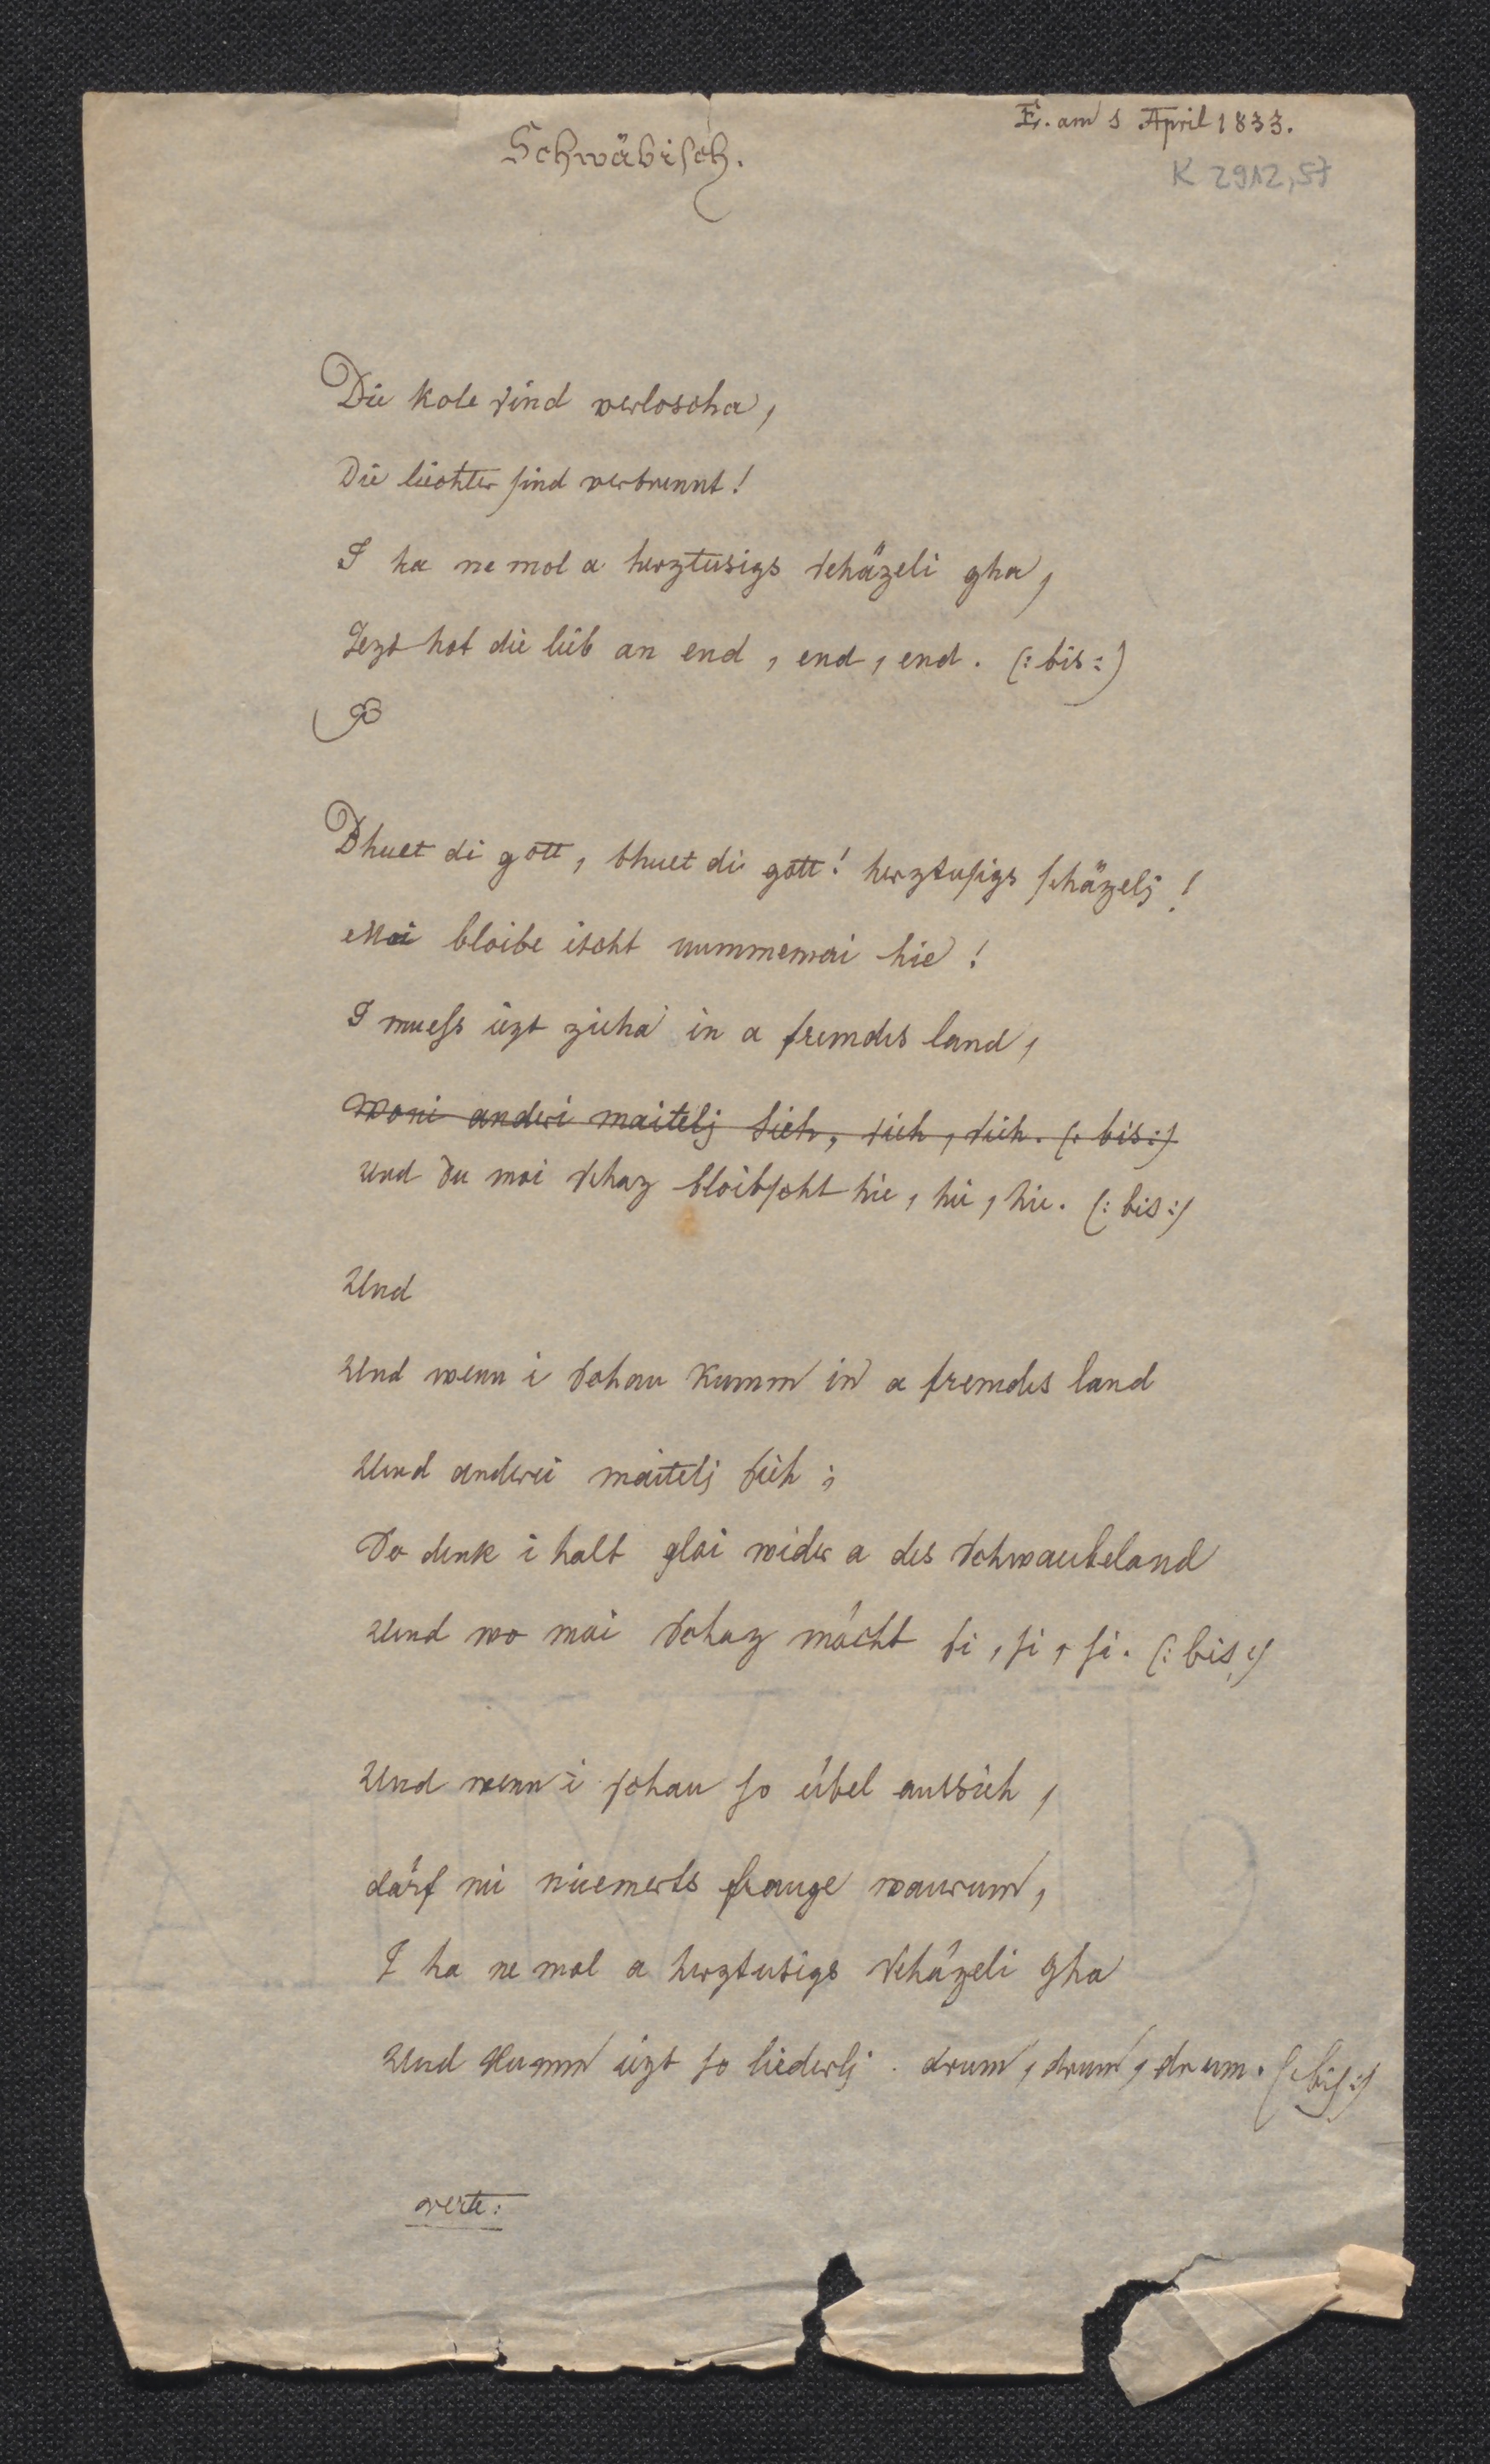 E. am 5 April 1833.
Schwäbisch.
K 2912,57
Die kole sind verloscha,
Die liechter sind verbrennt!
I ha ne mol a herztusigs schäzeli gha,
Jezt hot die lieb an end, end, end. (: bis :)
B
Bhuet di gott, bhuet di gott! herztusigs schäzelj!
Moi bloibe ischt nummemai hie!
I muess iezt zieha in a fremdes land,
Woni anderi maitelj sieh, sieh, sieh. (: bis :)
und du moi schaz bloibscht hie, hie, hie. (: bis :)
Und
Und wenn i schau kumm in a fremdes land
Und anderei maitelj sieh;
Do denk i halt gloi wider a des schwaubeland
Und wo moi schaz mächt si, si, si. (: bis :)
Und wenn i schau so übel aussieh,
därf mi niemerts frauge waurum,
I ha ne mol a herztusigs schäzeli gha
Und kumm iezt so liederlj drum, drum, drum. (: bis :)
verte: